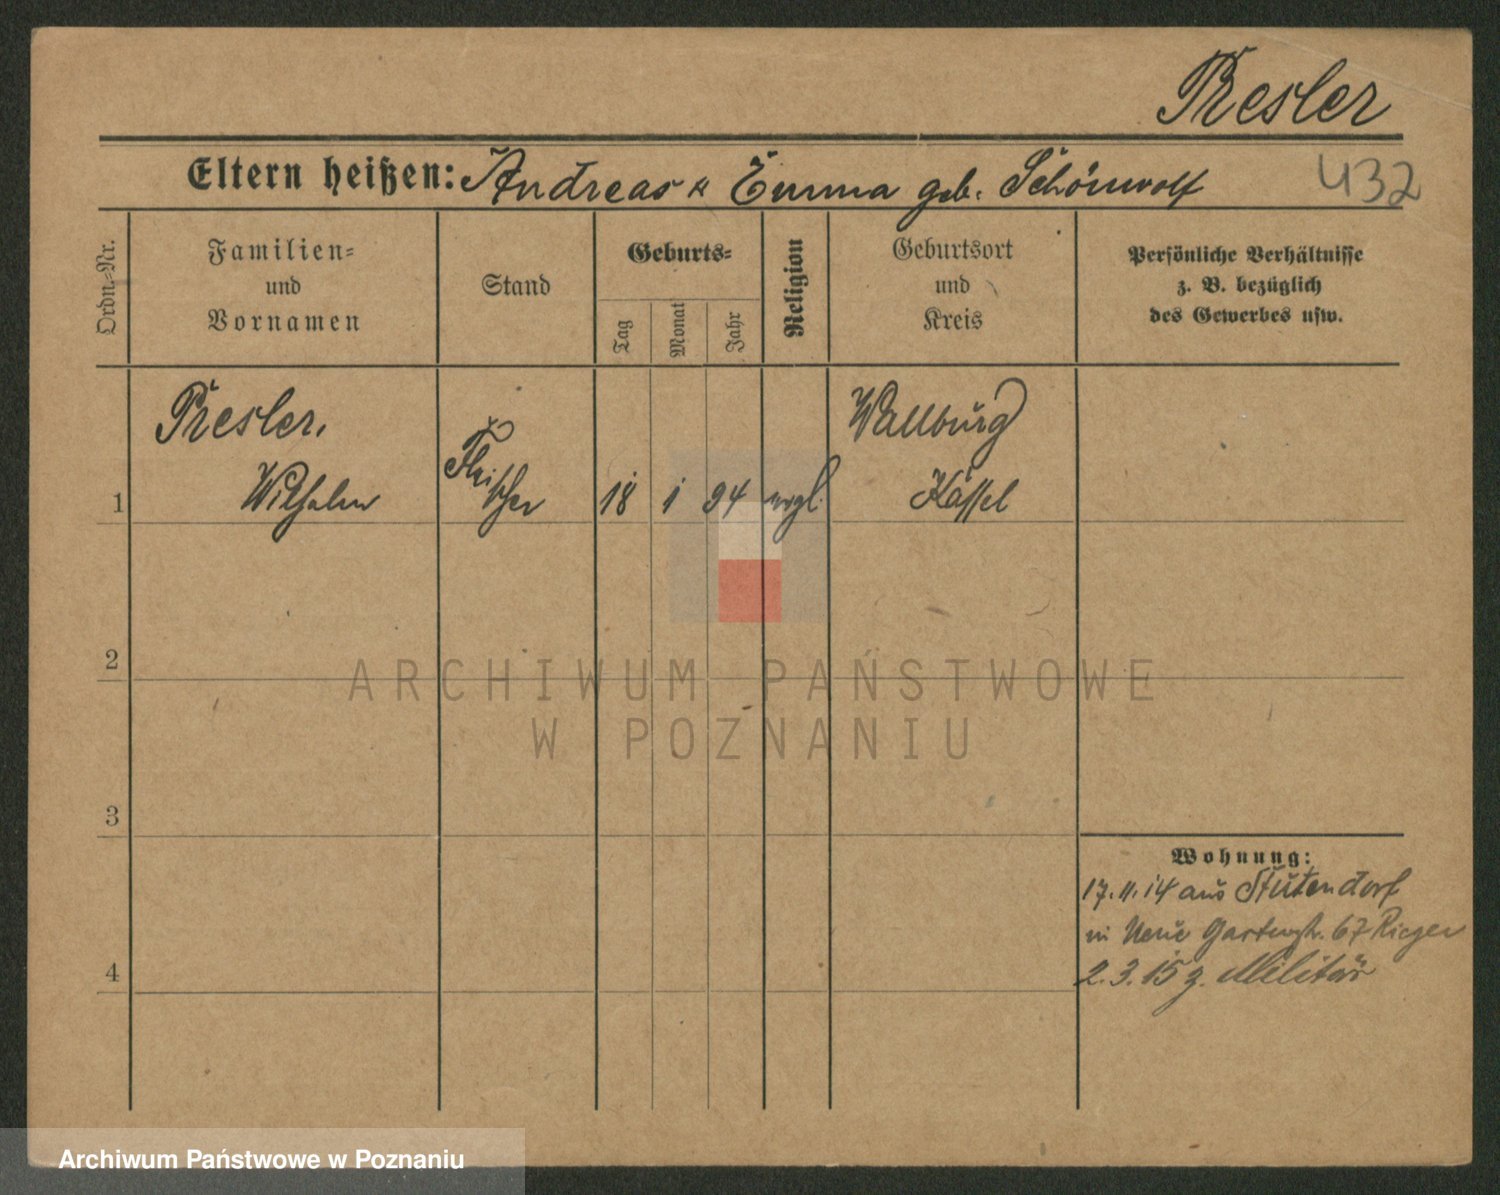 Presler
Eltern heißen: Andreas u Emma geb. Schönwolf
432
Ordn.-Nr.
Familien-
und
Vornamen
Stand
Geburts-
Tag
Monat
Jahr
Religion
Geburtsort
und
Kreis
Persönliche Verhältnisse
z. B. bezüglich
des Gewerbes usw.
1
Presler,
Wilhelm
Fleischer
18 1 94
evgl.
Wallburg
Kassel
2
3
4
Wohnung:
17.11.14 aus Stutendorf
in Neue Gartenstr. 67 Rieger
2.3.15 z. Militär
ARCHIWUM PAŃSTWOWE
W POZNANIU
Archiwum Państwowe w Poznaniu